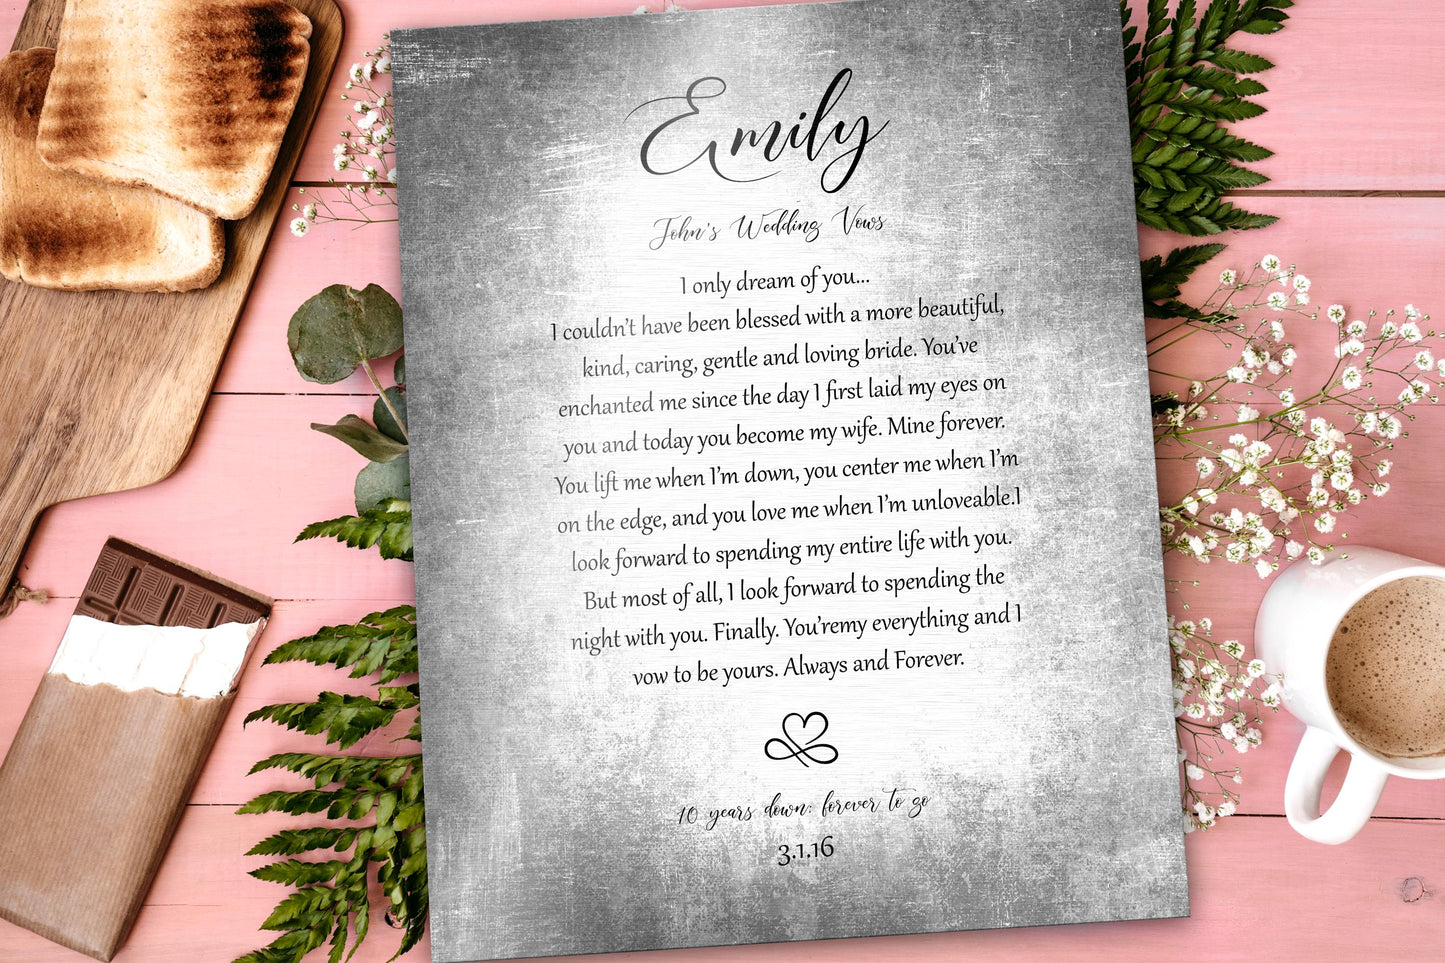 Emily
John's Wedding Vows
I only dream of you...
I couldn't have been blessed with a more beautiful,
kind, caring, gentle and loving bride. You've
enchanted me since the day I first laid my eyes on
you and today you become my wife. Mine forever.
You lift me when I'm down, you center me when I'm
on the edge, and you love me when I'm unloveable.I
look forward to spending my entire life with you.
But most of all, I look forward to spending the
night with you. Finally. You'remy everything and I
vow to be yours. Always and Forever.
10 years down; forever to go
3.1.16